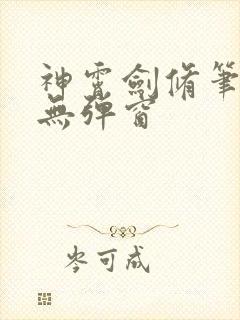 神霄劍脩筆
無彈窗
岑可成